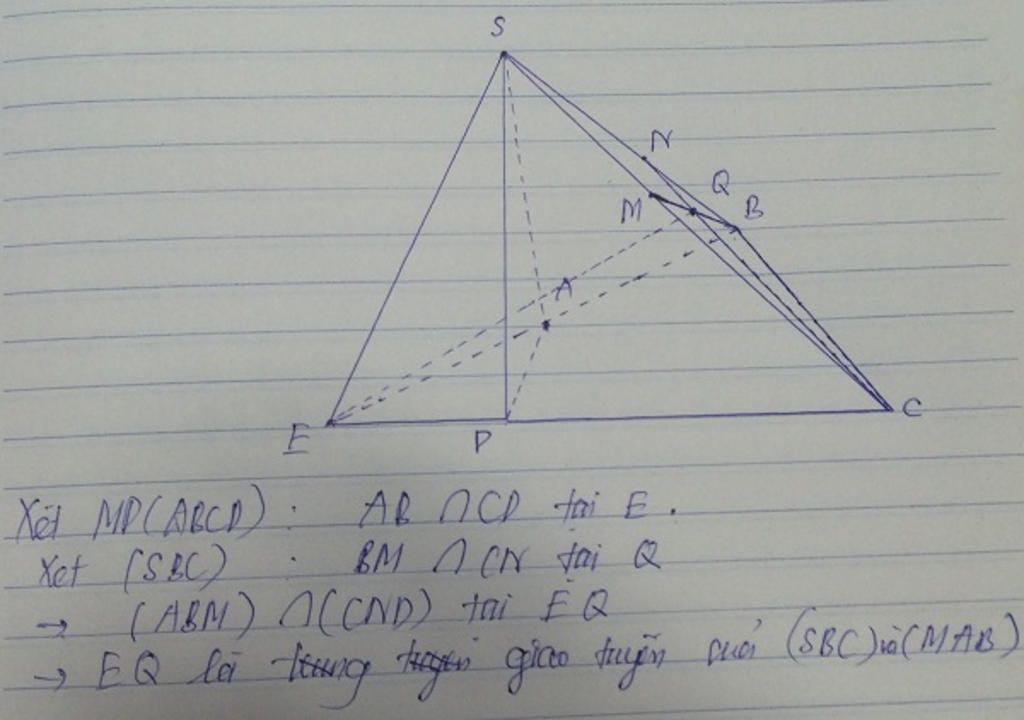 S
N
Q
M
B
A
E
P
C
Xét MP(ABCD) : AB ∩ CD tại E .
Xet (SBC) : BM ∩ CN tại Q
→ (ABM) ∩ (CND) tai EQ
→ EQ là giao tuyến của (SBC) và (MAB)